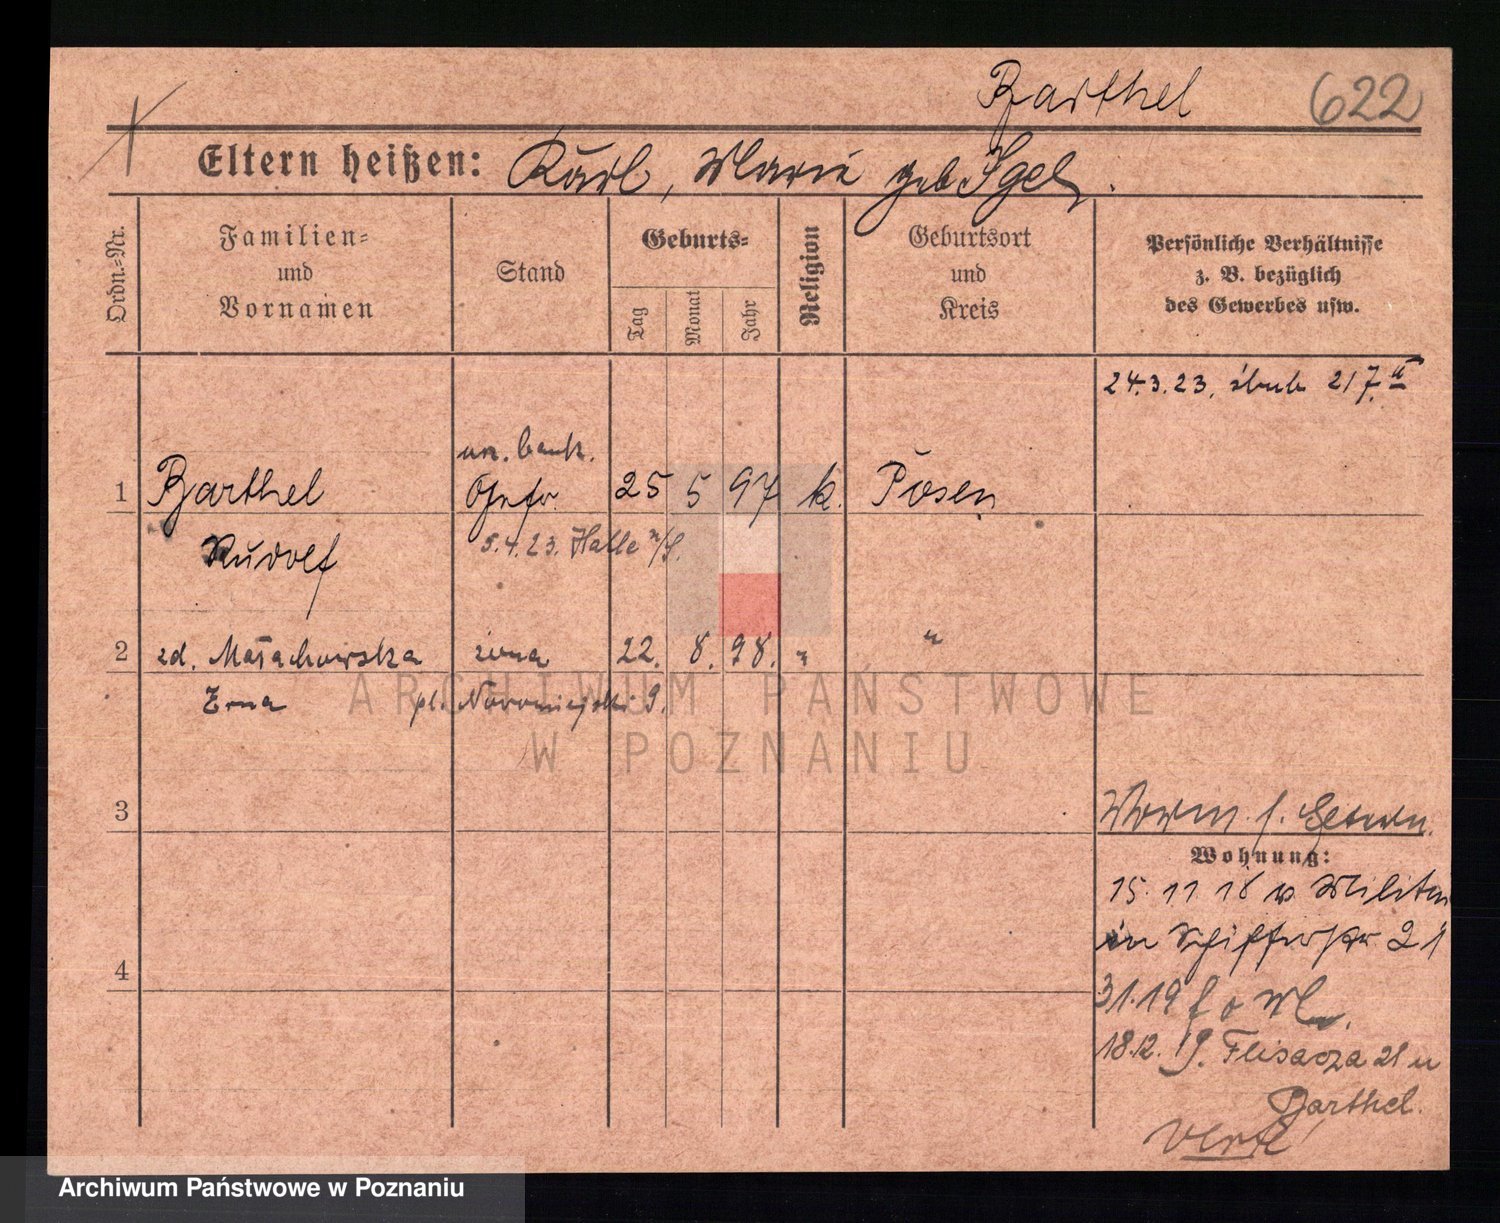 Barthel 622
Eltern heißen: Karl, Marie geb Igel.
Ordn.=Nr.
Familien=
und
Vornamen
Stand
Geburts=
Tag
Monat
Jahr
Religion
Geburtsort
und
Kreis
Persönliche Verhältnisse
z. B. bezüglich
des Gewerbes usw.
24.3.23. ślub 217 II
urz. bank.
1 Barthel Gefr. 25 5 97 k. Posen
Rudolf 5.4.23. Halle a/S.
2 zd. Małachowska żona 22. 8. 98. " "
Erna pl. Nowomiejski 9.
3
Worm. s. Eltern.
Wohnung:
15. 11 18 v. Militär
in Schifferstr 21
4
31.19 f o W
18.12. 19. Flisacza 21 u
Barthel.
verte
ARCHIWUM PAŃSTWOWE
W POZNANIU
Archiwum Państwowe w Poznaniu